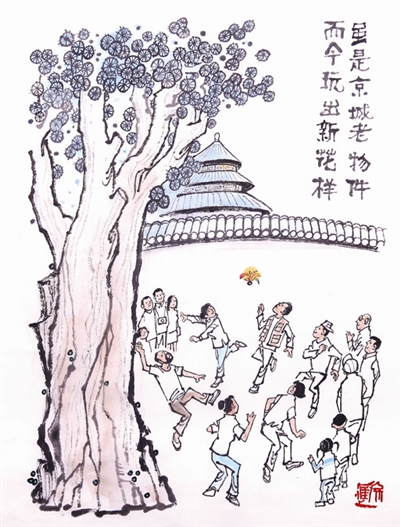 虽是京城老物件
而今玩出新花样